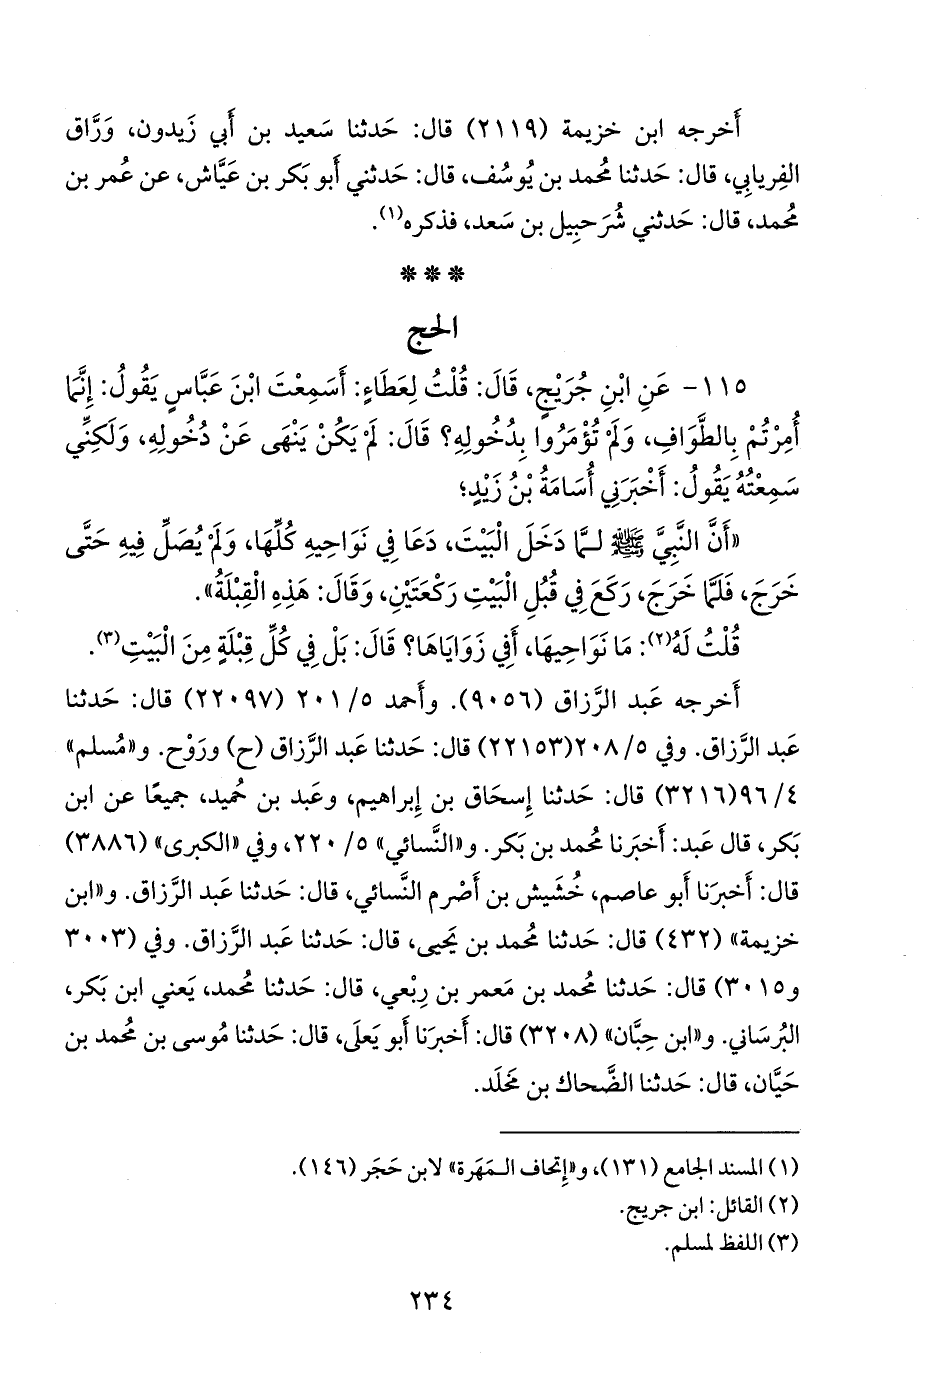 أَخرجه ابن خزيمة (٢١١٩) قال: حَدثنا سَعيد بن أَبي زَيدون، وَرَّاق
الفِريابي، قال: حَدثنا مُحمد بن يُوسُف، قال: حَدثني أَبو بَكر بن عَيَّاش، عن عُمر بن
مُحمد، قال: حَدثني شُرَحبِيل بن سَعد، فذكره(١).
***
الحج
١١٥- عَنِ ابْنِ جُرَيْجٍ، قَالَ: قُلْتُ لِعَطَاءٍ: أَسَمِعْتَ ابْنَ عَبَّاسٍ يَقُولُ: إِنَّمَا
أُمِرْتُمْ بِالطَّوَافِ، وَلَمْ تُؤْمَرُوا بِدُخُولِهِ؟ قَالَ: لَمْ يَكُنْ يَنْهَى عَنْ دُخُولِهِ، وَلَكِنِّي
سَمِعْتُهُ يَقُولُ: أَخْبَرَنِي أُسَامَةُ بْنُ زَيْدٍ؛
«أَنَّ النَّبِيَّ ﷺ لـمَّا دَخَلَ الْبَيْتَ، دَعَا فِي نَوَاحِيهِ كُلِّهَا، وَلَمْ يُصَلِّ فِيهِ حَتَّى
خَرَجَ، فَلَمَّا خَرَجَ، رَكَعَ فِي قُبُلِ الْبَيْتِ رَكْعَتَيْنِ، وَقَالَ: هَذِهِ الْقِبْلَةُ».
قُلْتُ لَهُ(٢): مَا نَوَاحِيهَا، أَفِي زَوَايَاهَا؟ قَالَ: بَلْ فِي كُلِّ قِبْلَةٍ مِنَ الْبَيْتِ(٣).
أَخرجه عَبد الرَّزاق (٩٠٥٦). وأَحمد ٥/ ٢٠١ (٢٢٠٩٧) قال: حَدثنا
عَبد الرَّزاق. وفي ٥/ ٢٠٨(٢٢١٥٣) قال: حَدثنا عَبد الرَّزاق (ح) ورَوْح. و«مُسلم»
٤/ ٩٦(٣٢١٦) قال: حَدثنا إِسحَاق بن إِبراهيم، وعَبد بن حُميد، جميعًا عن ابن
بَكر، قال عَبد: أَخبَرنا مُحمد بن بَكر. و«النَّسائي» ٥/ ٢٢٠، وفي «الكبرى» (٣٨٨٦)
قال: أَخبرَنا أَبو عاصم، خُشَيش بن أَصْرم النَّسائي، قال: حَدثنا عَبد الرَّزاق. و«ابن
خزيمة» (٤٣٢) قال: حَدثنا مُحمد بن يَحيى، قال: حَدثنا عَبد الرَّزاق. وفي (٣٠٠٣
و٣٠١٥) قال: حَدثنا مُحمد بن مَعمر بن رِبْعي، قال: حَدثنا مُحمد، يَعني ابن بَكر،
البُرسَاني. و«ابن حِبَّان» (٣٢٠٨) قال: أَخبرَنا أَبو يَعلَى، قال: حَدثنا مُوسى بن مُحمد بن
حَيَّان، قال: حَدثنا الضَّحاك بن مَخلَد.
(١) المسند الجامع (١٣١)، و«إِتحاف الـمَهَرة» لابن حَجَر (١٤٦).
(٢) القائل: ابن جريج.
(٣) اللفظ لمسلم.
٢٣٤